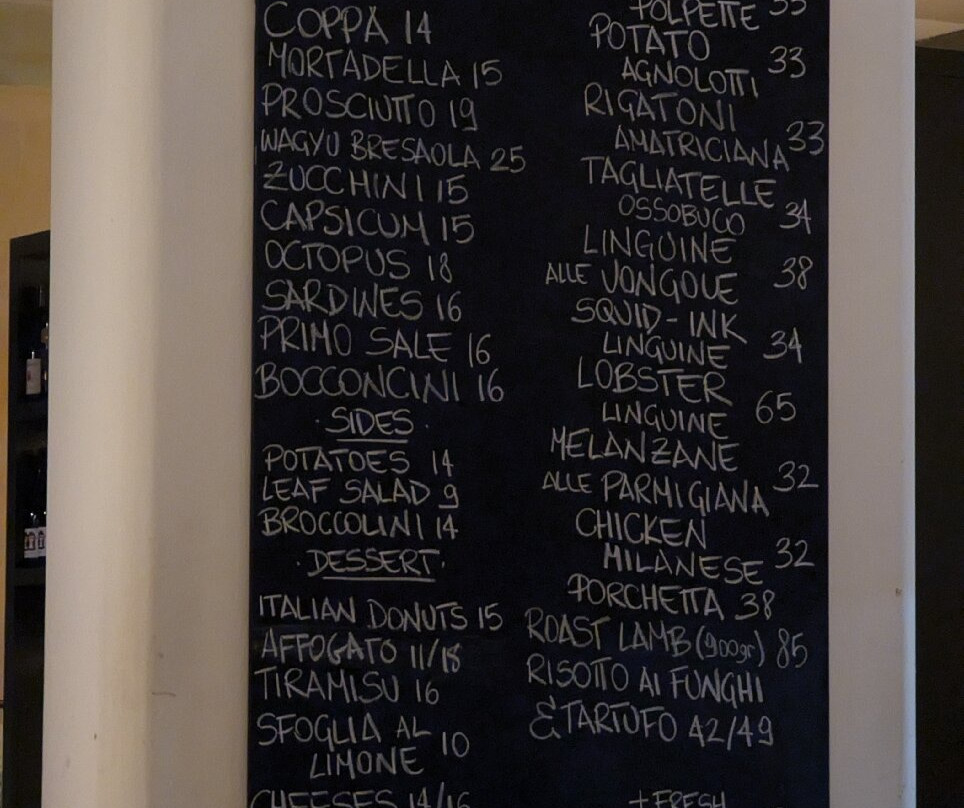 COPPA 14
MORTADELLA 15
PROSCIUTTO 19
WAGYU BRESAOLA 25
ZUCCHINI 15
CAPSICUM 15
OCTOPUS 18
SARDINES 16
PRIMO SALE 16
BOCCONCINI 16
· SIDES ·
POTATOES 14
LEAF SALAD 9
BROCCOLINI 14
· DESSERT ·
ITALIAN DONUTS 15
AFFOGATO 11/18
TIRAMISU 16
SFOGLIA AL
LIMONE 10
CHEESES 14/16
POLPETTE 33
POTATO
AGNOLOTTI 33
RIGATONI
AMATRICIANA 33
TAGLIATELLE
OSSOBUCO 34
LINGUINE
ALLE VONGOLE 38
SQUID-INK
LINGUINE 34
LOBSTER
LINGUINE 65
MELANZANE
ALLE PARMIGIANA 32
CHICKEN
MILANESE 32
PORCHETTA 38
ROAST LAMB (900gr) 85
RISOTTO AI FUNGHI
& TARTUFO 42/49
+ FRESH